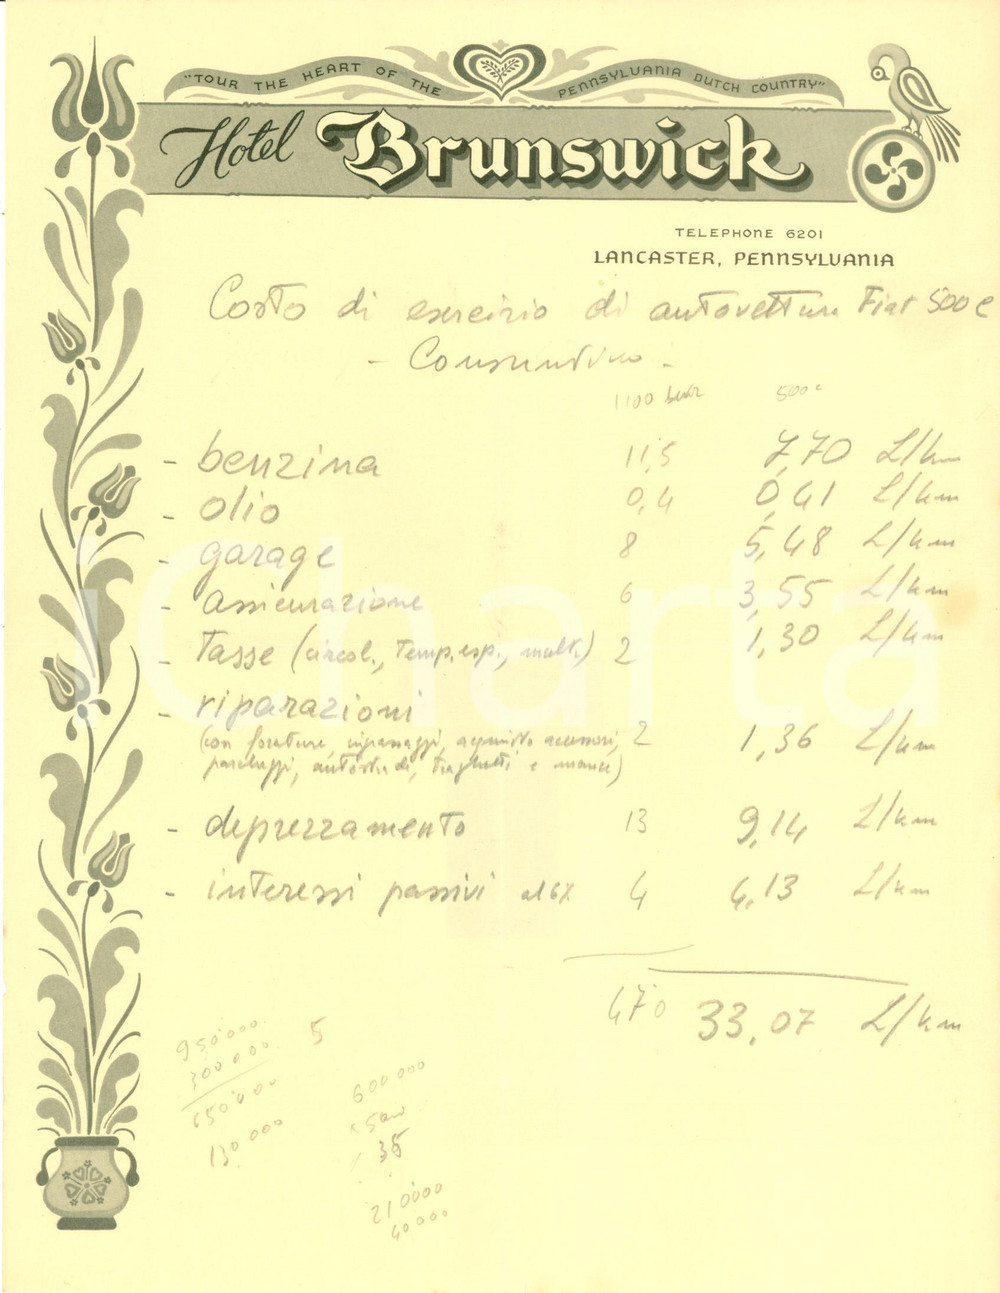 "TOUR THE HEART OF THE PENNSYLVANIA DUTCH COUNTRY"
Hotel Brunswick
TELEPHONE 6201
LANCASTER, PENNSYLVANIA
Costo di esercizio di autovettura Fiat 500 C
- Consuntivo -
1100 500 c
- benzina 11,5 7,70 L/km
- olio 0,4 0,41 L/km
- garage 8 5,48 L/km
- assicurazione 6 3,55 L/km
- tasse (circol., temp. esp., mult.) 2 1,30 L/km
- riparazioni
(con forature, ingrassaggi, acquisto accessori, 2 1,36 L/km
parcheggi, autostrade, traghetti e mance)
- deprezzamento 13 9,14 L/km
- interessi passivi al 6% 4 4,13 L/km
470 33,07 L/km
950'000 5
300000
650'000
130 000
600 000
35
210000
40000
iCharta